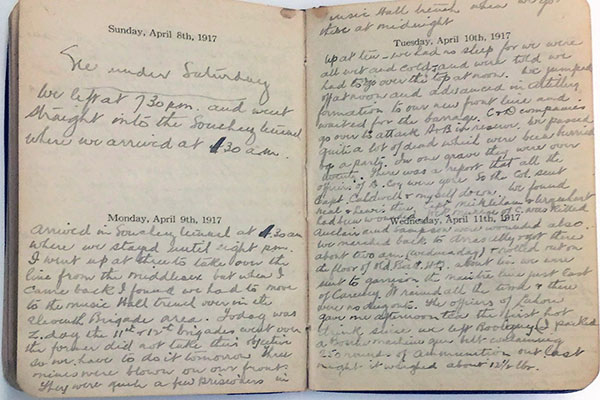 Sunday, April 8th, 1917
See under Saturday
We left at 7 30 p.m. and went
straight into the Souchez tunnel
where we arrived at 1 30 a.m.
Monday, April 9th, 1917
arrived in Souchez tunnel at 1.30 am
where we stayed until eight p.m.
I went up at three to take over the
line from the Middlesex but when I
came back I found we had to move
to the music Hall trench over in the
eleventh Brigade area. Today was
Z. day the 11th & 12th brigades went over
the former did not take their objective
so we have to do it tomorrow three
mines were blown on our front.
They were quite a few prisoners in
music Hall trench when we got
there at midnight
Tuesday, April 10th, 1917
up at ten - we had no sleep for we were
all wet and cold, and were told we
had to go over the top at noon. We jumped
off at noon and advanced in artillery
formation to our new front line and
waited for the barrage. C & D companies
go over to attack A & B in reserve. We passed
quite a lot of dead which were been burried
by a party. In one grave they were over
There was a report that all the
officers of B. Coy were gone so the Col. sent
Capt. Caldwell & myself down. We found
Neal & Lewis there. Capt. & Urquhart
had been of C. was killed
and Sampson were wounded also.
Wednesday, April 11th, 1917
we marched back to got there
about two am (wednesday) out on
the floor of Bde H.Q. At six we were
sent to garrison the line just East
of Carency it rained all the time & there
were no dug outs. The officers of
gave me afternoon tea the first hot
drink since we left I packed
a Bosche machine gun belt containing
250 rounds of ammunition out last
night it weighed about 12½ lbs.